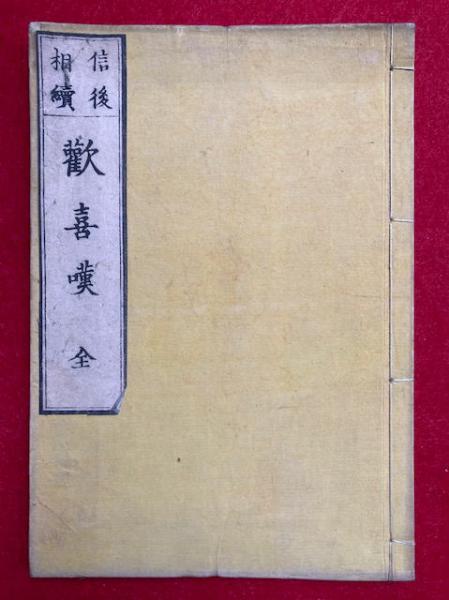 信後
相續
歡喜嘆 全